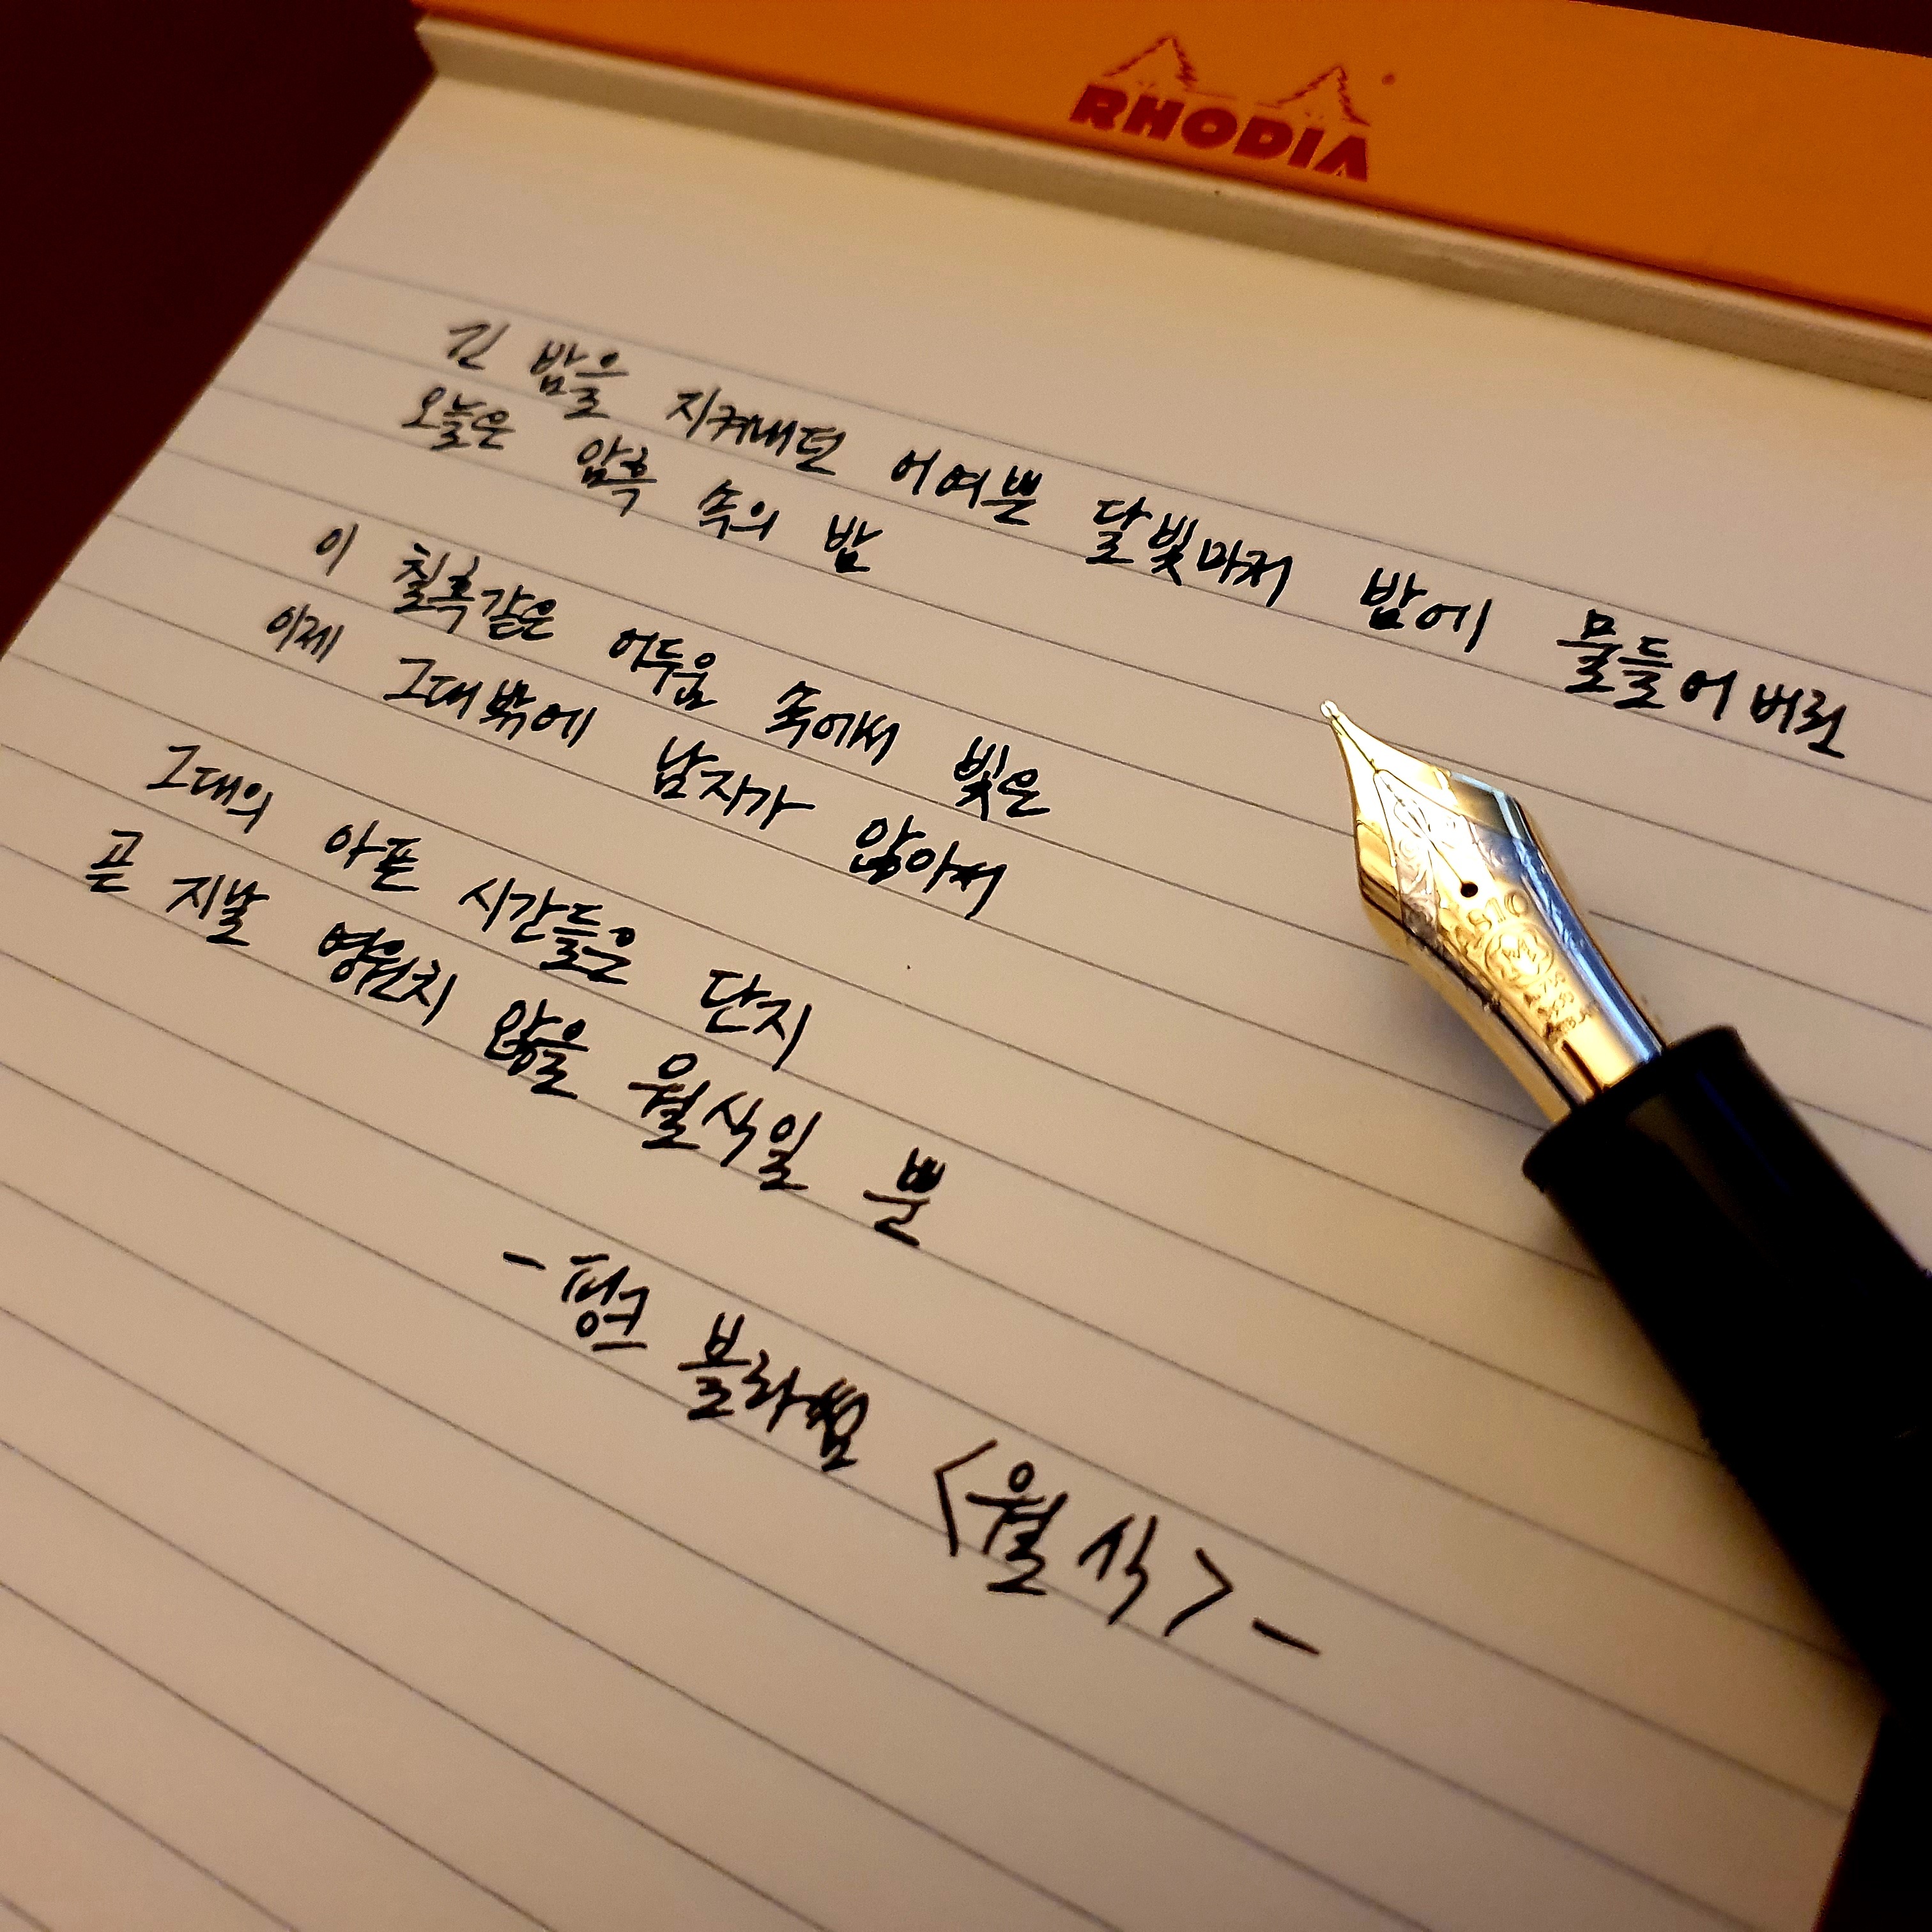 RHODIA
긴 밤을 지켜내던 어여쁜 달빛마저 밤에 물들어버린
오늘은 암흑 속의 밤
이 칠흑같은 어두움 속에서 빛은
이제 그대밖에 남자가 않아서
그대의 아픈 시간들은 단지
곧 지날 영원치 않을 월식일 뿐
-펑크 블라썸 <월식>-